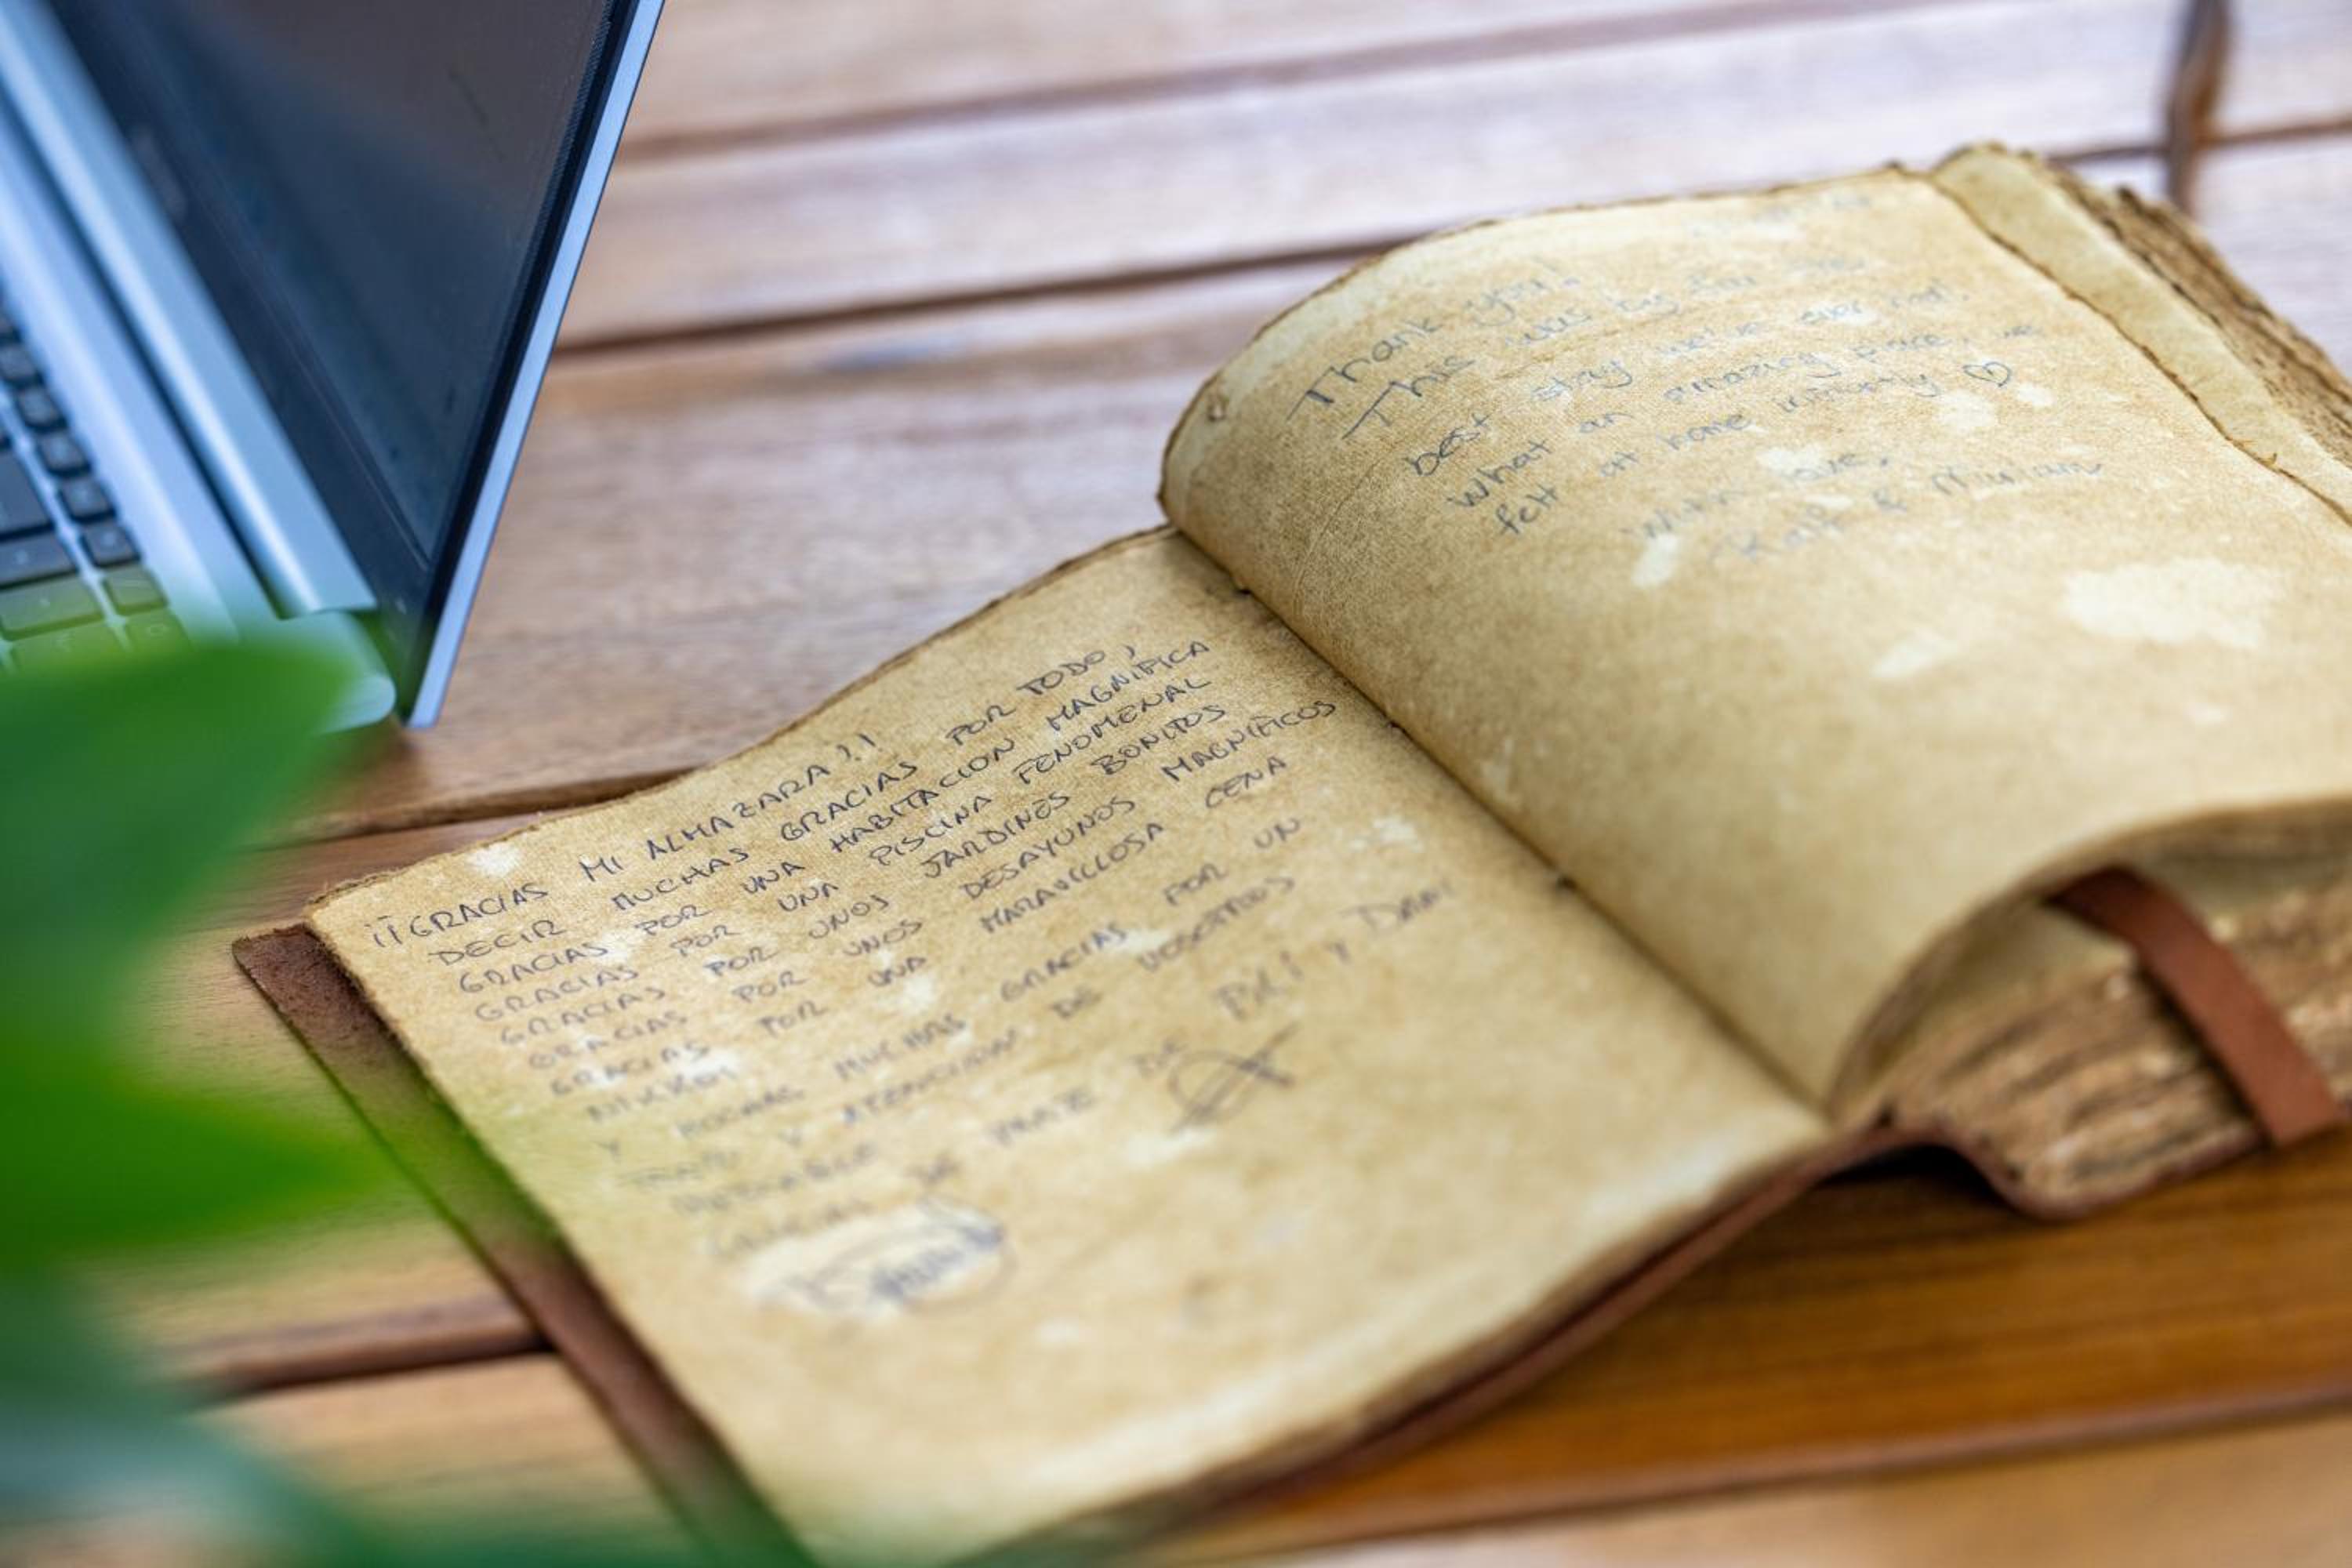 ¡¡GRACIAS MI ALMAZARA!!
DECIR MUCHAS GRACIAS POR TODO,
GRACIAS POR UNA HABITACION MAGNIFICA
GRACIAS POR UNA PISCINA FENOMENAL
GRACIAS POR UNOS JARDINES BONITOS
GRACIAS POR UNOS DESAYUNOS MAGNIFICOS
GRACIAS POR UNA MARAVILLOSA CENA
Y MUCHAS MUCHAS GRACIAS POR UN
TRATO Y ATENCION DE VOSOTROS
DE PARTE DE PILI Y DANI
Thank you!
This was by far the
best stay we've ever had!
What an amazing place, we
felt at home instantly ♡
With love,
Ralf & Miriam